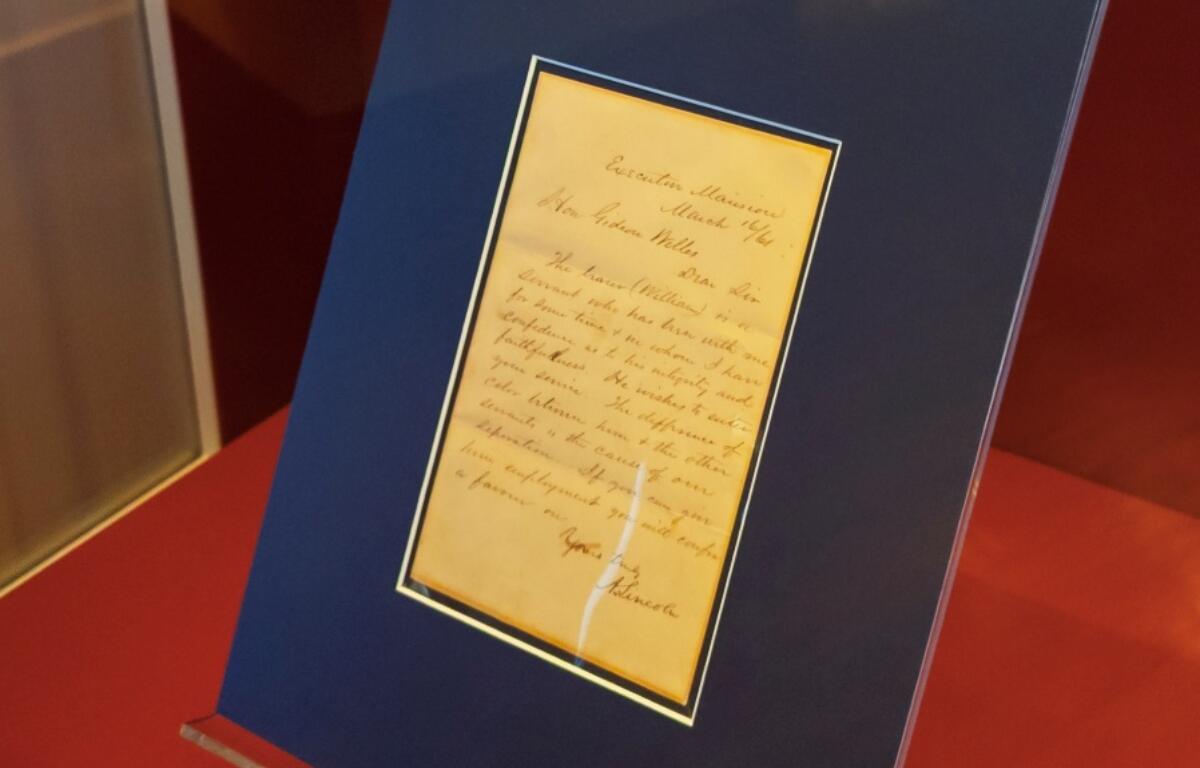 Executive Mansion
March 16/61
Hon Gideon Welles
Dear Sir
The bearer (William) is a
servant who has been with me
for some time & in whom I have
confidence as to his integrity and
faithfulness. He wishes to enter
your service. The difference of
color between him & the other
servants is the cause of our
seperation. If you can give
him employment you will confer
a favour on
Yours truly
A. Lincoln